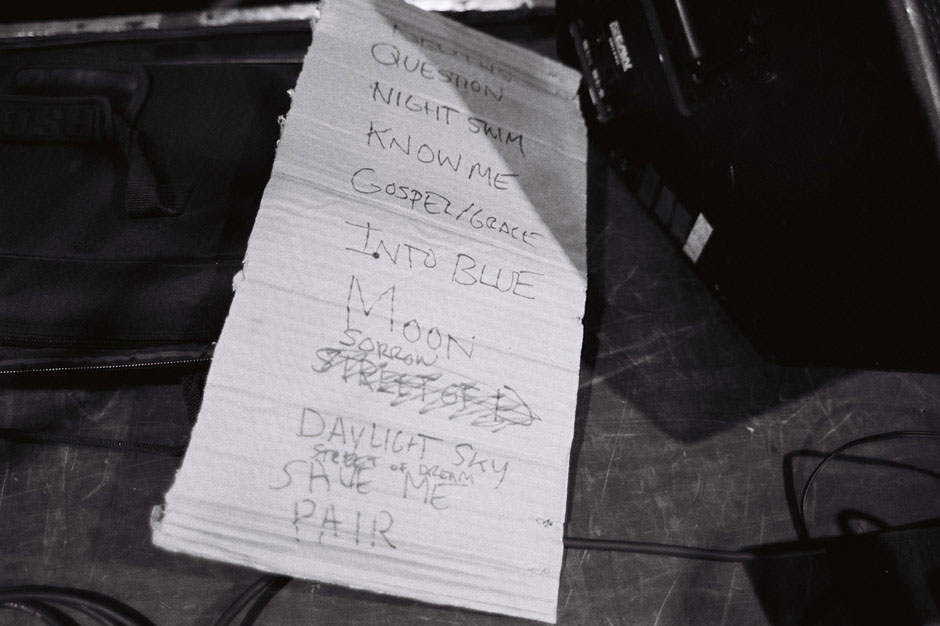 QUESTION
NIGHT SWIM
KNOW ME
GOSPEL/GRACE
INTO BLUE
MOON
SORROW
STREET OF D
DAYLIGHT SKY
STREET OF DREAM
SAVE ME
PAIR